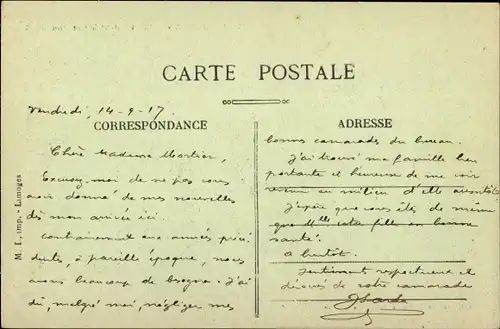 CARTE POSTALE
Vendredi, 14-9-17
CORRESPONDANCE
Chère Madame Mortier,
Excusez-moi de ne pas vous
avoir donné de mes nouvelles
dès mon arrivée ici.
Contrairement aux années précé-
dentes, à pareille époque, nous
avons beaucoup de besogne. J'ai
dû, malgré moi, négliger mes
ADRESSE
bonnes camarades du bureau.
J'ai trouvé ma famille bien
portante et heureuse de me voir
revenu au milieu d'elle aussitôt
J'espère que vous êtes de même
que Mlle votre fille en bonne
santé.
A bientôt.
Sentiments respectueux et
dévoués de votre camarade
M. I., imp. - Limoges